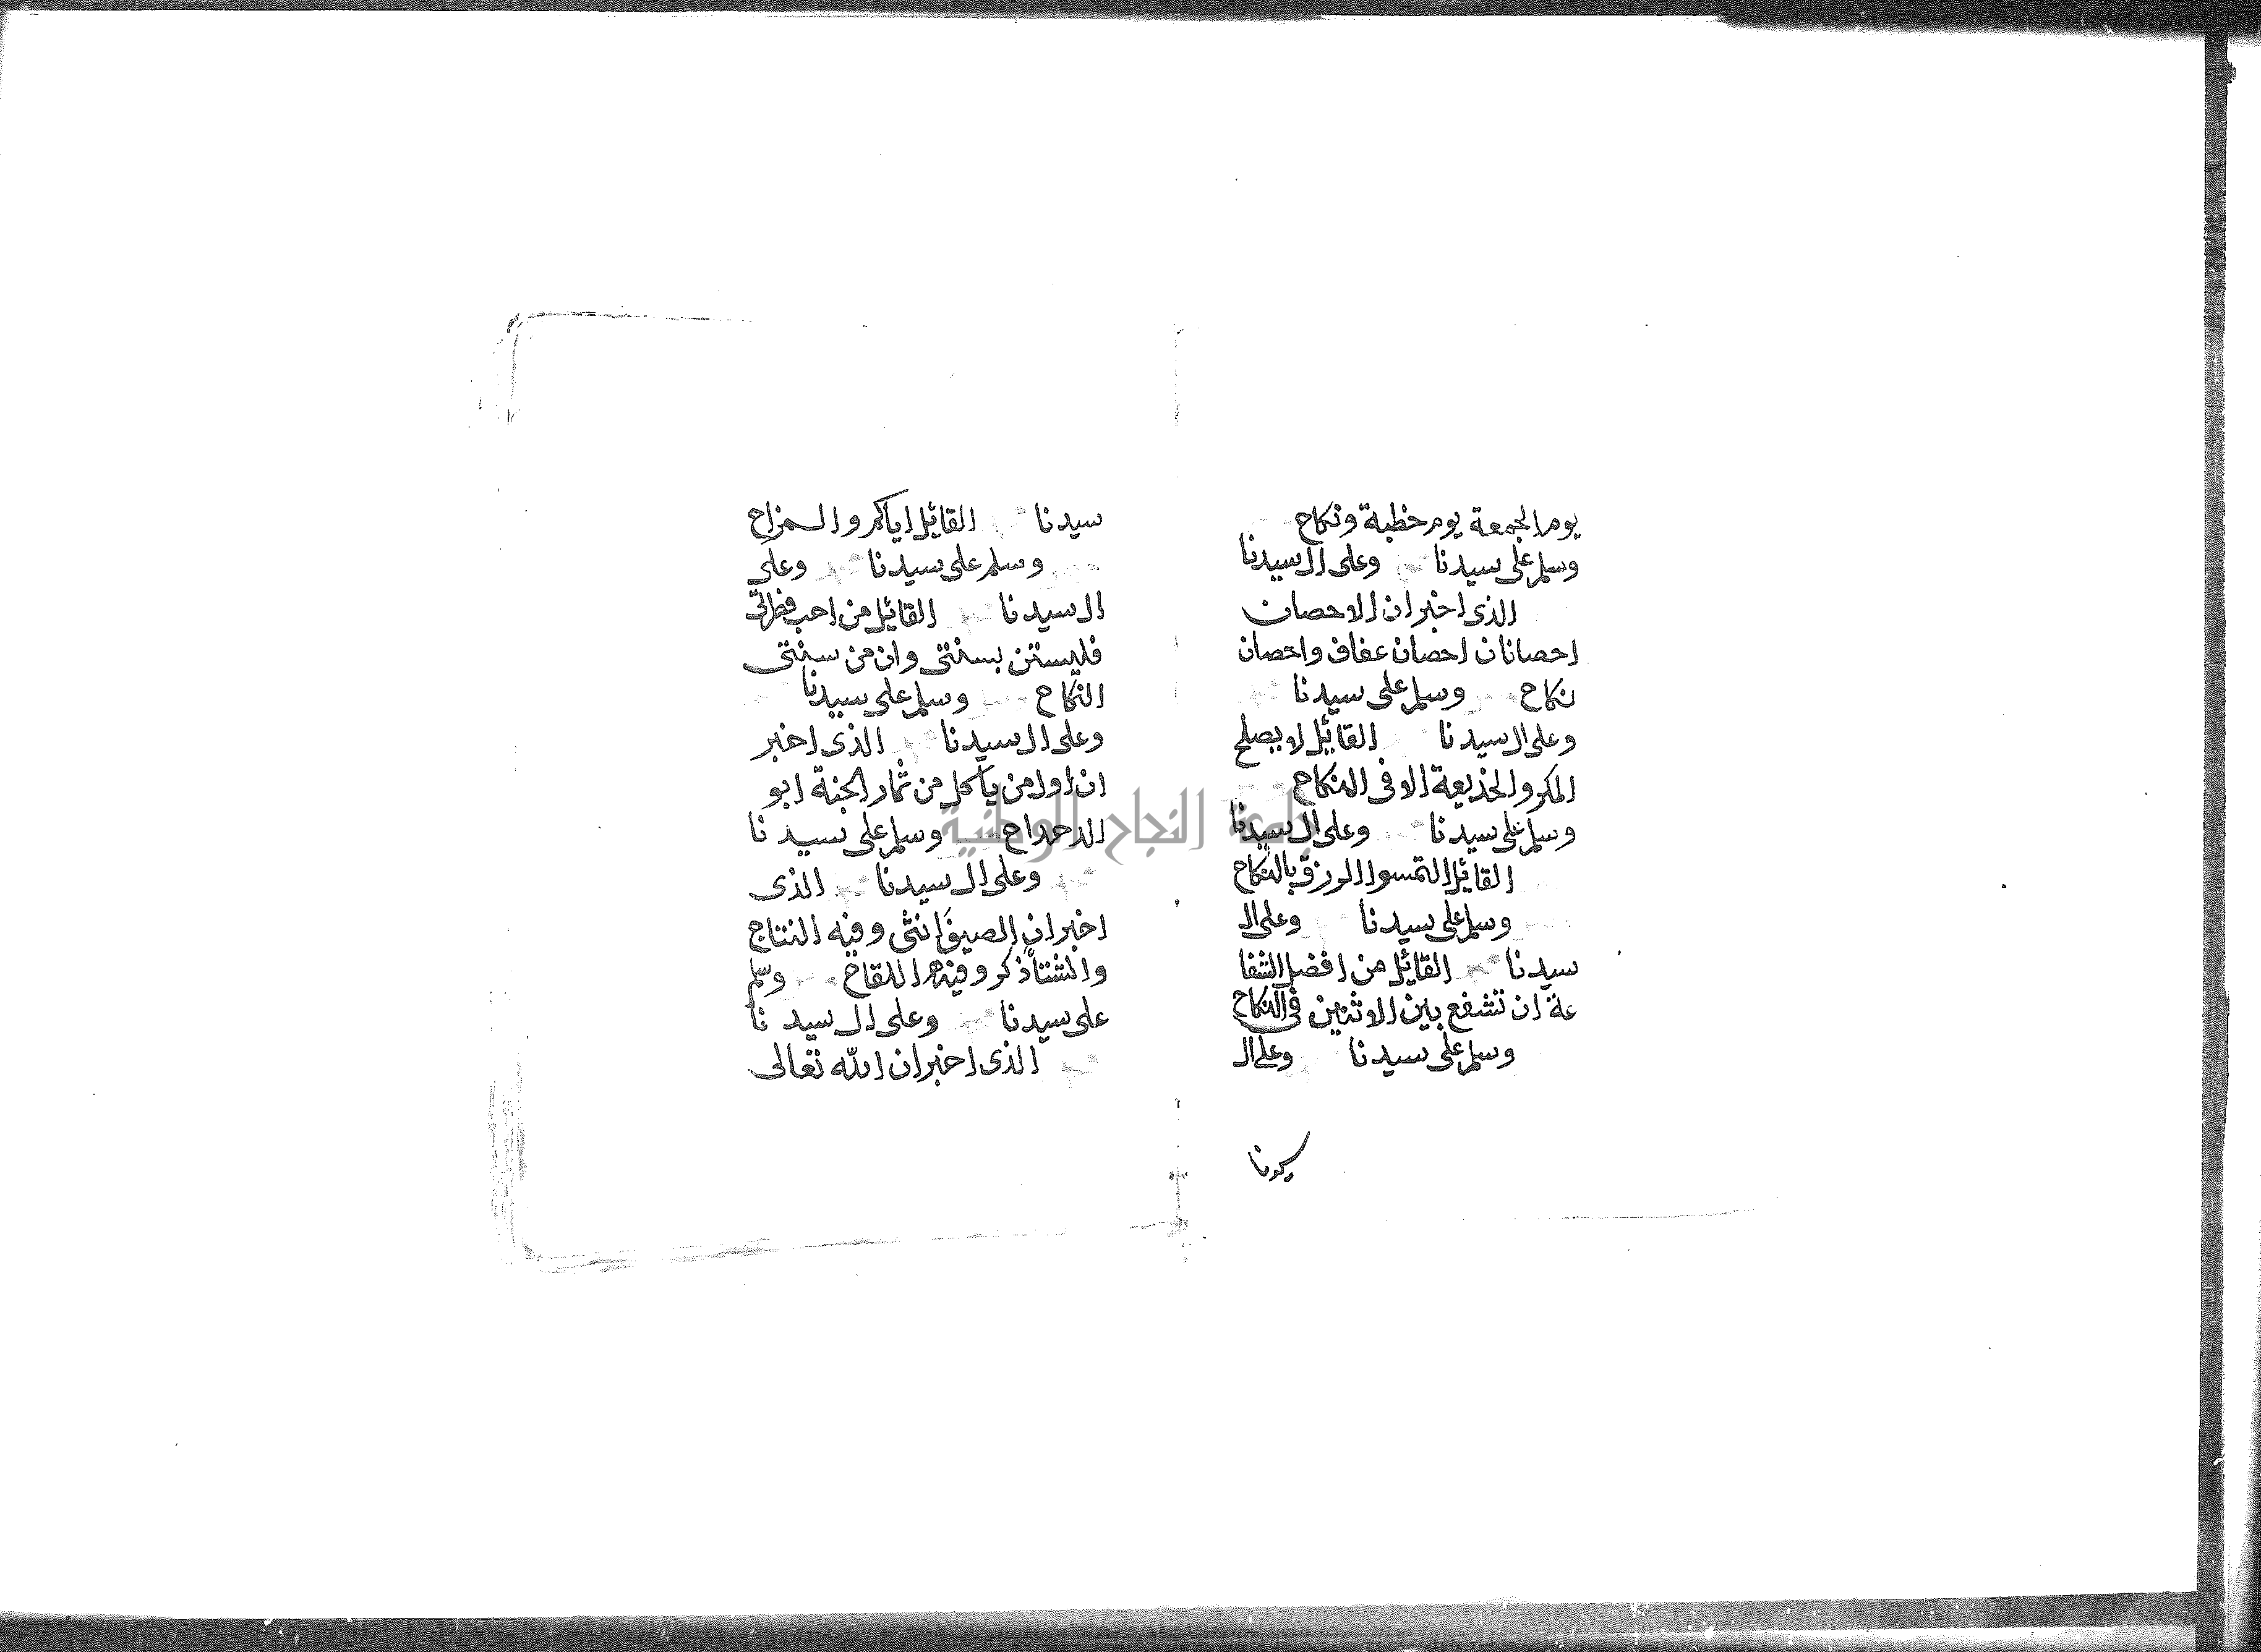 يوم الجمعة يوم خطبة ونكاح
وسلم على سيدنا وعلى ال سيدنا
الذى اخبر ان الاحصان
احصانان احصان عفاف واحصان
نكاح وسلم على سيدنا
وعلى ال سيدنا القائل لا يصلح
المكر والخذيعة الا فى النكاح
وسلم على سيدنا وعلى ال سيدنا
القائل التمسوا الرزق بالنكاح
وسلم على سيدنا وعلى ال
سيدنا القائل من افضل الشفا
عة ان تشفع بين الاثنين فى النكاح
وسلم على سيدنا وعلى ال
سيدنا
سيدنا القائل اياكم والمزاح
وسلم على سيدنا وعلى
ال سيدنا القائل من احب فطرتى
فليستن بسنتى وان من سنتى
النكاح وسلم على سيدنا
وعلى ال سيدنا الذى اخبر
ان اول من يأكل من ثمار الجنة ابو
الدحداح وسلم على سيدنا
وعلى ال سيدنا الذى
اخبر ان الصيف انثى وفيه النتاج
والشتا ذكر وفيه اللقاح وسلم
على سيدنا وعلى ال سيدنا
الذى اخبر ان الله تعالى
جامعة النجاح الوطنية